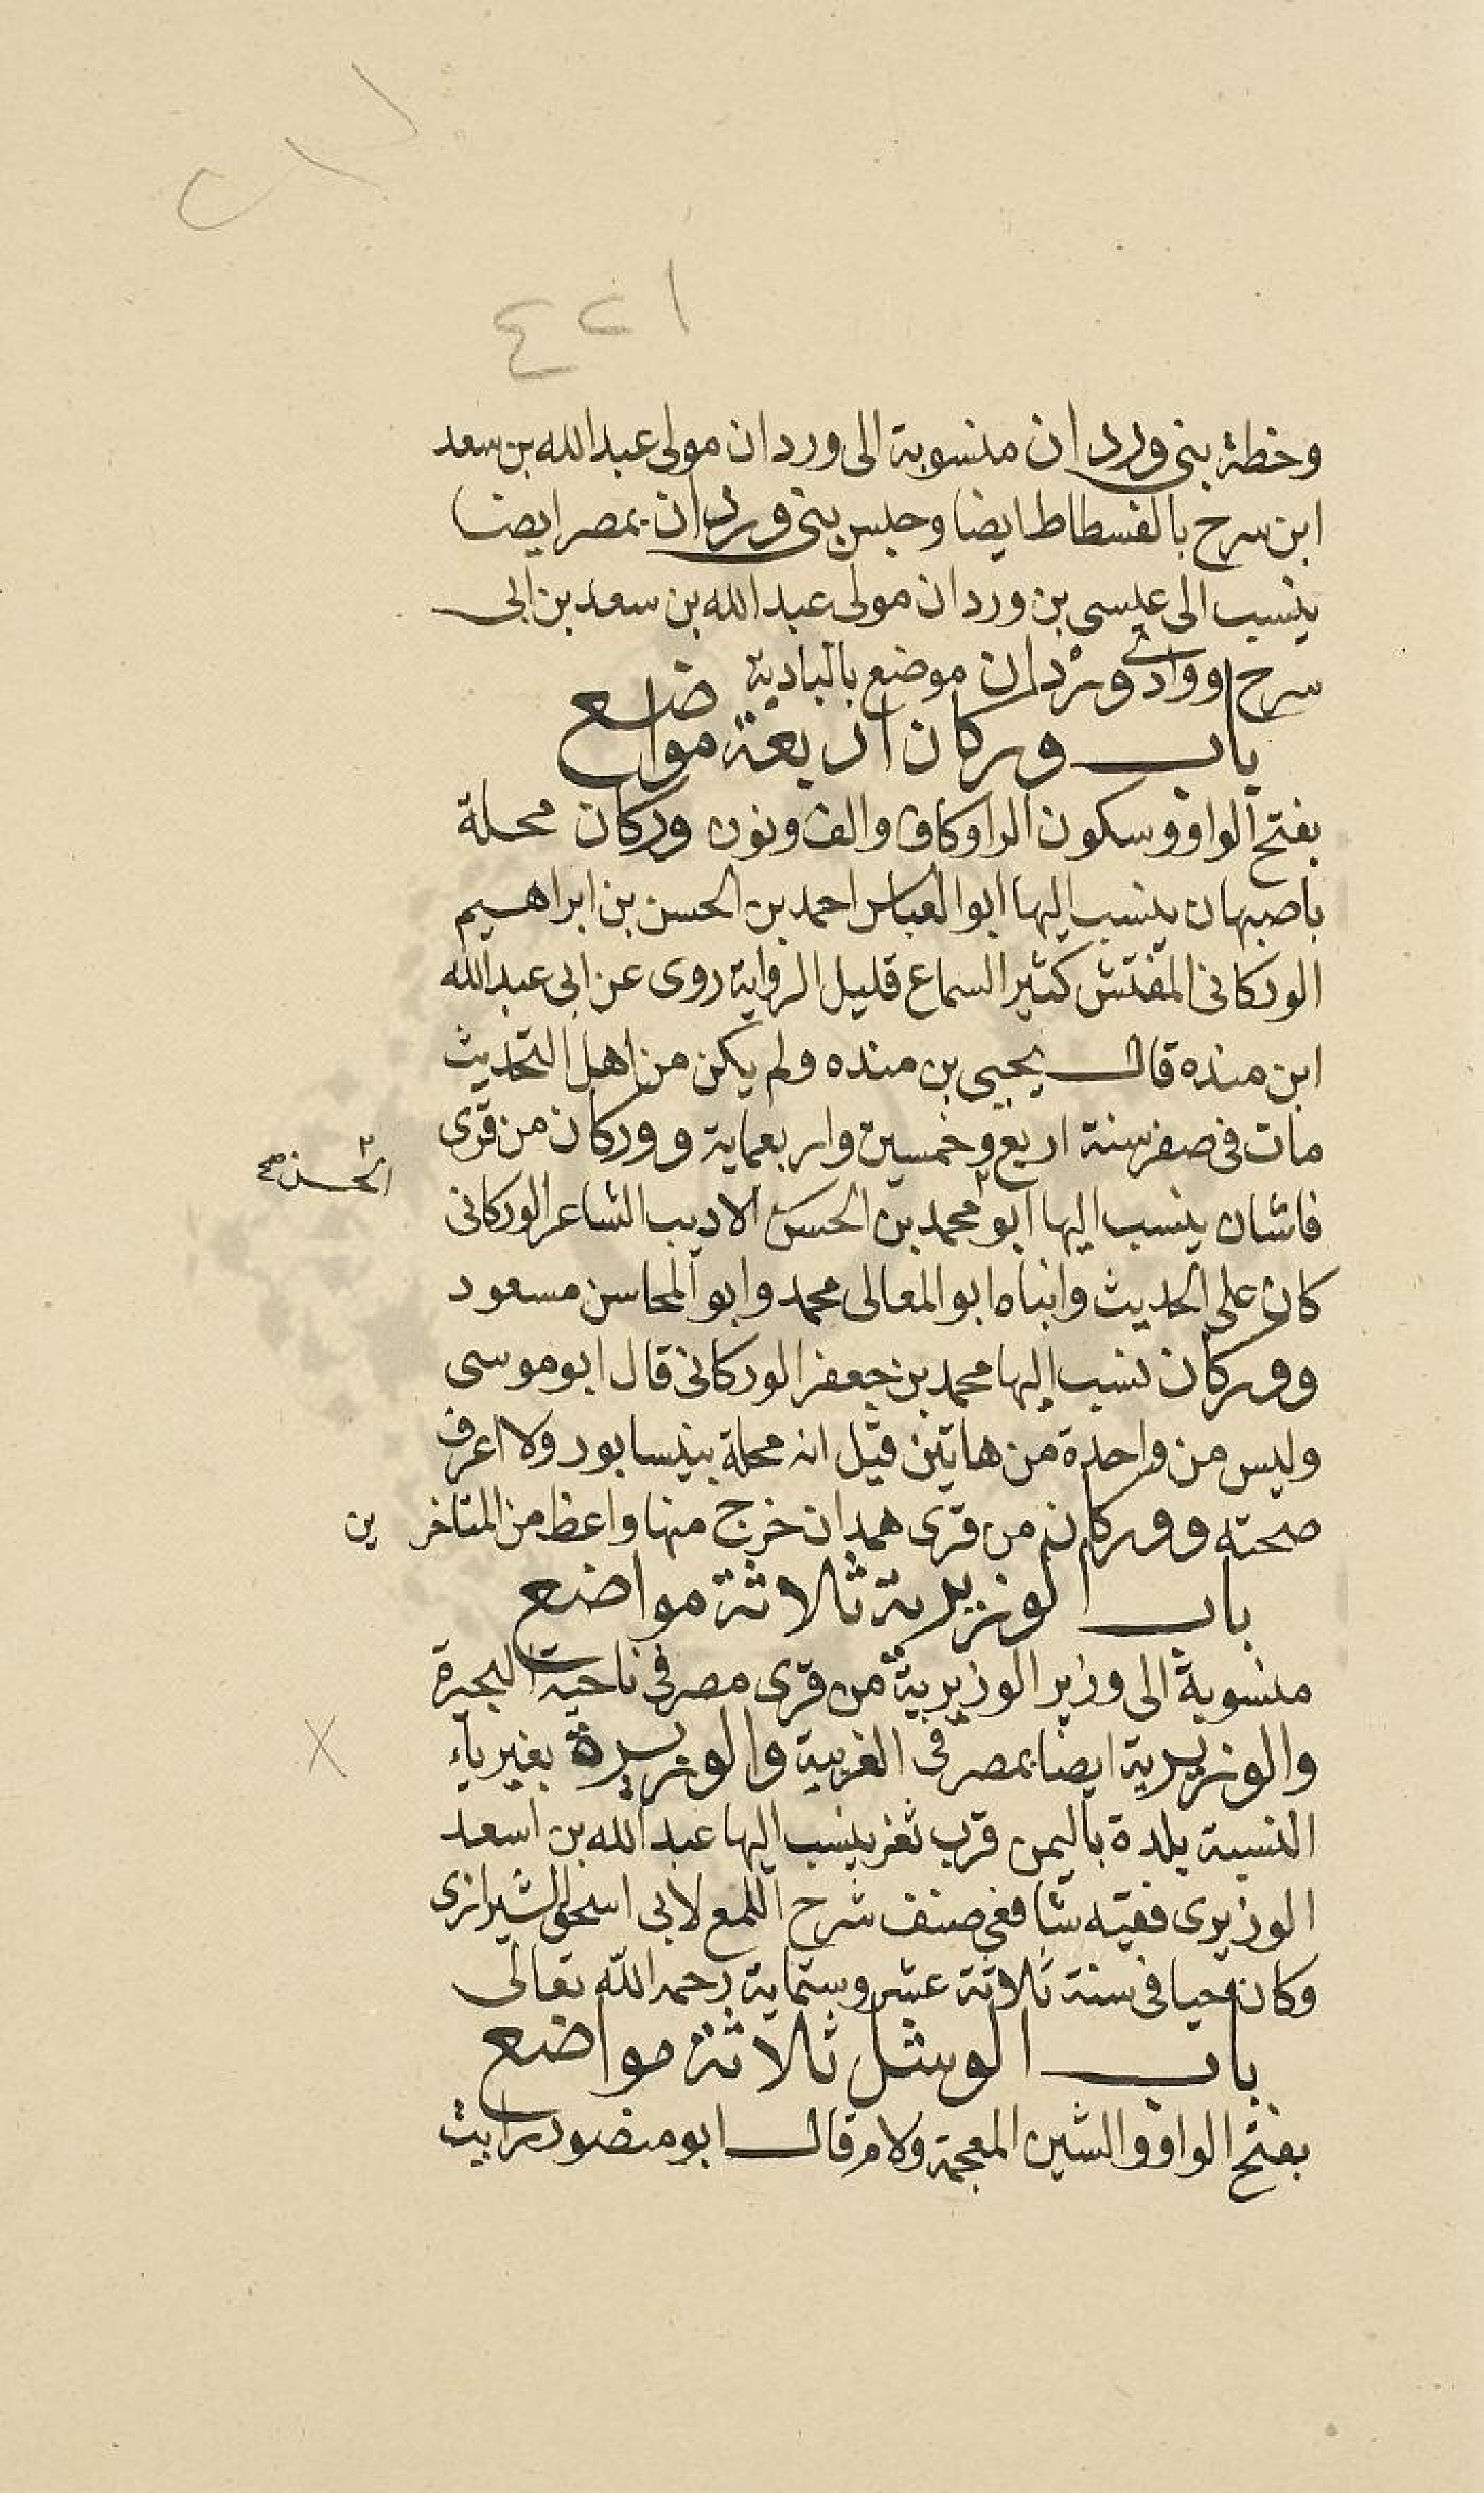 ٤٢١
وخطة بنى وردان منسوبة الى وردان مولى عبد الله بن سعد
ابن سرح بالفسطاط ايضا وحبس بنى وردان بمصر ايضا
ينسب الى عيسى بن وردان مولى عبد الله بن سعد بن ابى
سرح ووادى وردان موضع بالبادية
باب وركان اربعة مواضع
بفتح الواو وسكون الرا وكاف والف ونون وركان محلة
باصبهان ينسب اليها ابو العباس احمد بن الحسن بن ابراهيم
الوركانى المفتش كثير السماع قليل الرواية روى عن ابى عبد الله
ابن منده قال يحيى بن منده ولم يكن من اهل التحديث
مات فى صفر سنة اربع وخمسين واربعماية ووركان من قرى
الحسن صح
قاشان ينسب اليها ابو محمد بن الحسن الاديب الشاعر الوركانى
كان على الحديث وابناه ابو المعالى محمد وابو المحاسن مسعود
ووركان نسب اليها محمد بن جعفر الوركانى قال ابو موسى
وليس من واحدة من هاتين قيل انه محلة بنيسابور ولا اعرف
صحته ووركان من قرى همدان خرج منها واعظ من المتاخرين
باب الوزيرية ثلاثة مواضع
منسوبة الى وزير الوزيرية من قرى مصر فى ناحية البحيرة
والوزيرية ايضا بمصر فى الغربية والوزيرة بغير ياء
النسبة بلدة باليمن قرب تعز ينسب اليها عبد الله بن اسعد
الوزيرى فقيه شافعى صنف شرح اللمع لابى اسحق الشيرازى
وكان حيا فى سنة ثلاثة عشر وستماية رحمه الله تعالى
باب الوشل ثلاثة مواضع
بفتح الواو والشين المعجمة ولام قال ابو منصور رايت